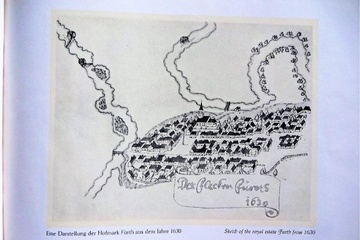 Der Flecken Fürort
1630
Eine Darstellung der Hofmark Fürth aus dem Jahre 1630
Sketch of the royal estate Fuerth from 1630